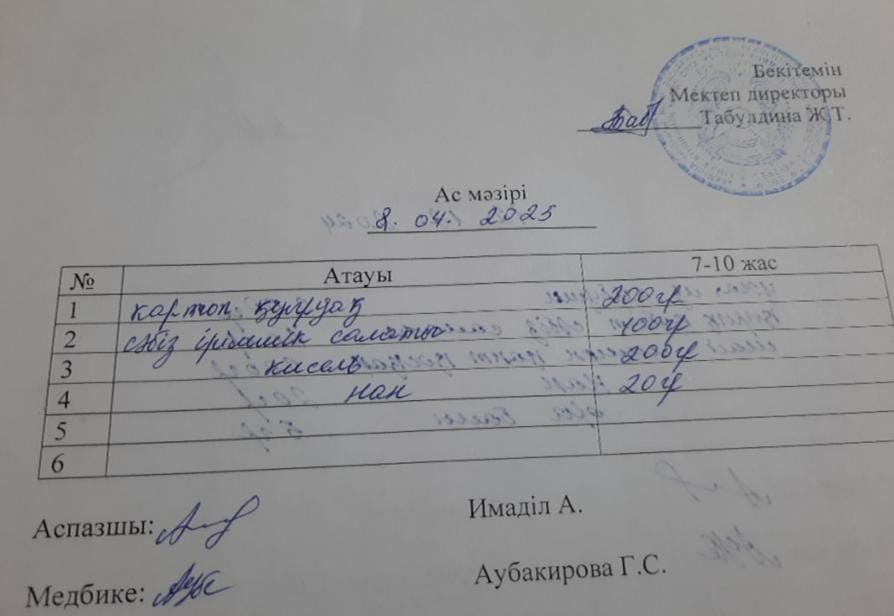 Бекітемін
Мектеп директоры
Табулдина Ж.Т.
Ас мәзірі
8. 04. 2025
№ Атауы 7-10 жас
1 картоп қуырдақ 200гр
2 сәбіз ірімшік салаты 100гр
3 кисель 200гр
4 нан 20гр
5
6
Аспазшы: Имаділ А.
Медбике: Аубакирова Г.С.